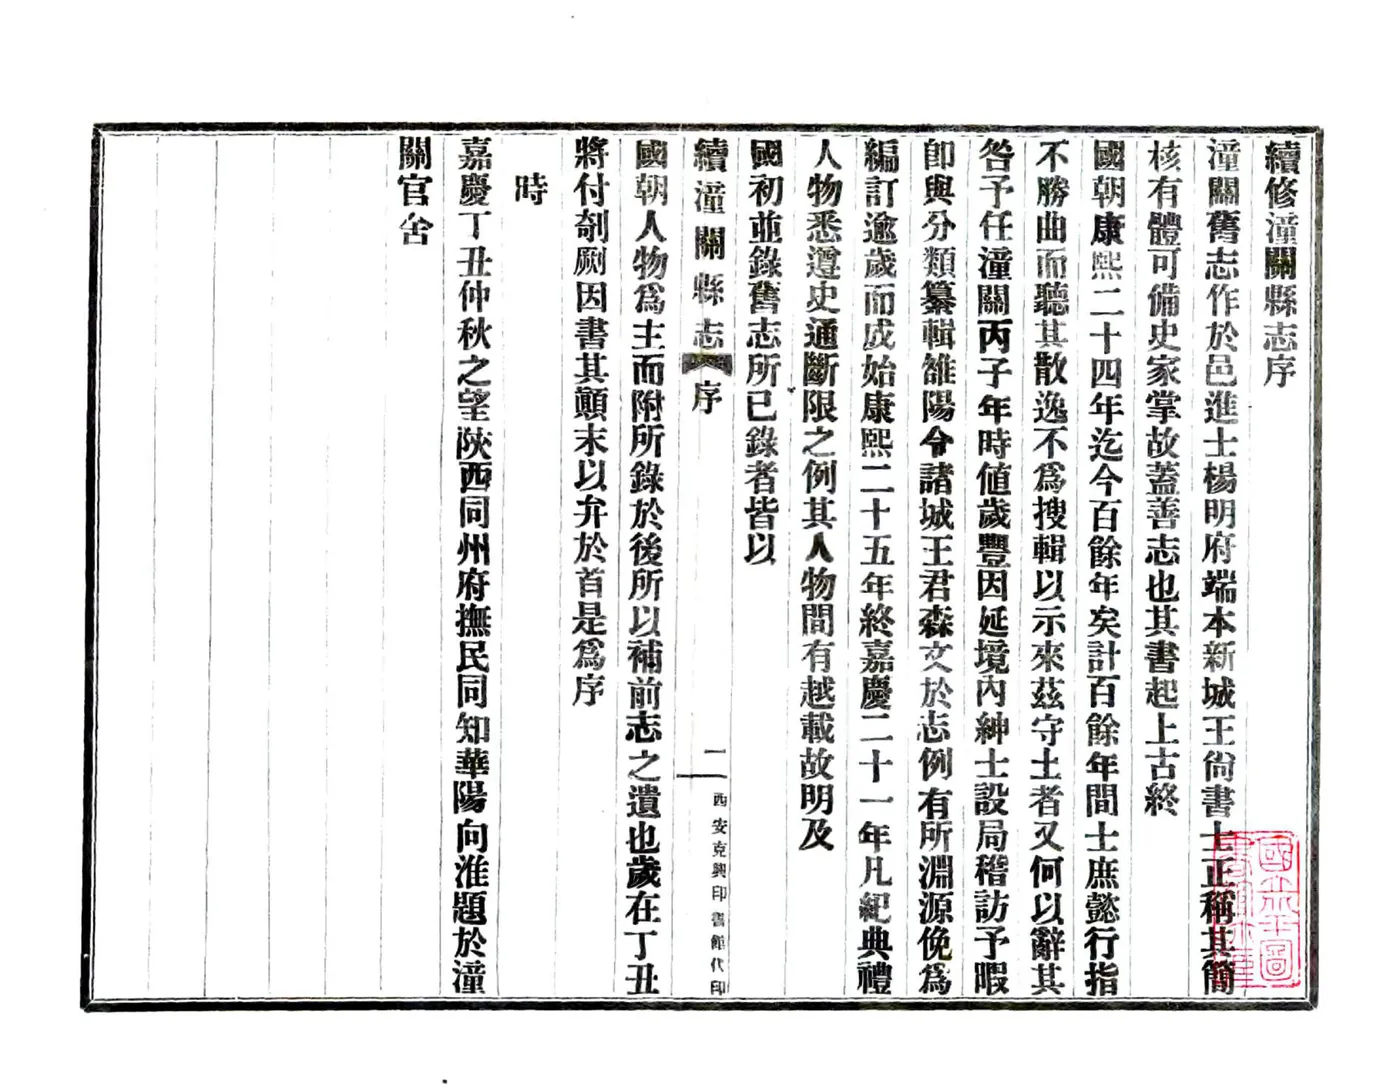 續修潼關縣志序
潼關舊志作於邑進士楊明府端本新城王尙書士正稱其簡
核有體可備史家掌故蓋善志也其書起上古終
國朝康熙二十四年迄今百餘年矣計百餘年間士庶懿行指
不勝曲而聽其散逸不爲搜輯以示來茲守土者又何以辭其
咎予任潼關丙子年時値歲豐因延境內紳士設局稽訪予暇
卽與分類纂輯雒陽令諸城王君森文於志例有所淵源俛爲
編訂逾歲而成始康熙二十五年終嘉慶二十一年凡紀典禮
人物悉遵史通斷限之例其人物間有越載故明及
國初並錄舊志所已錄者皆以
續潼關縣志 序 二 西安克興印書館代印
國朝人物爲主而附所錄於後所以補前志之遺也歲在丁丑
將付剞劂因書其顚末以弁於首是爲序
時
嘉慶丁丑仲秋之望陝西同州府撫民同知華陽向淮題於潼
關官舍